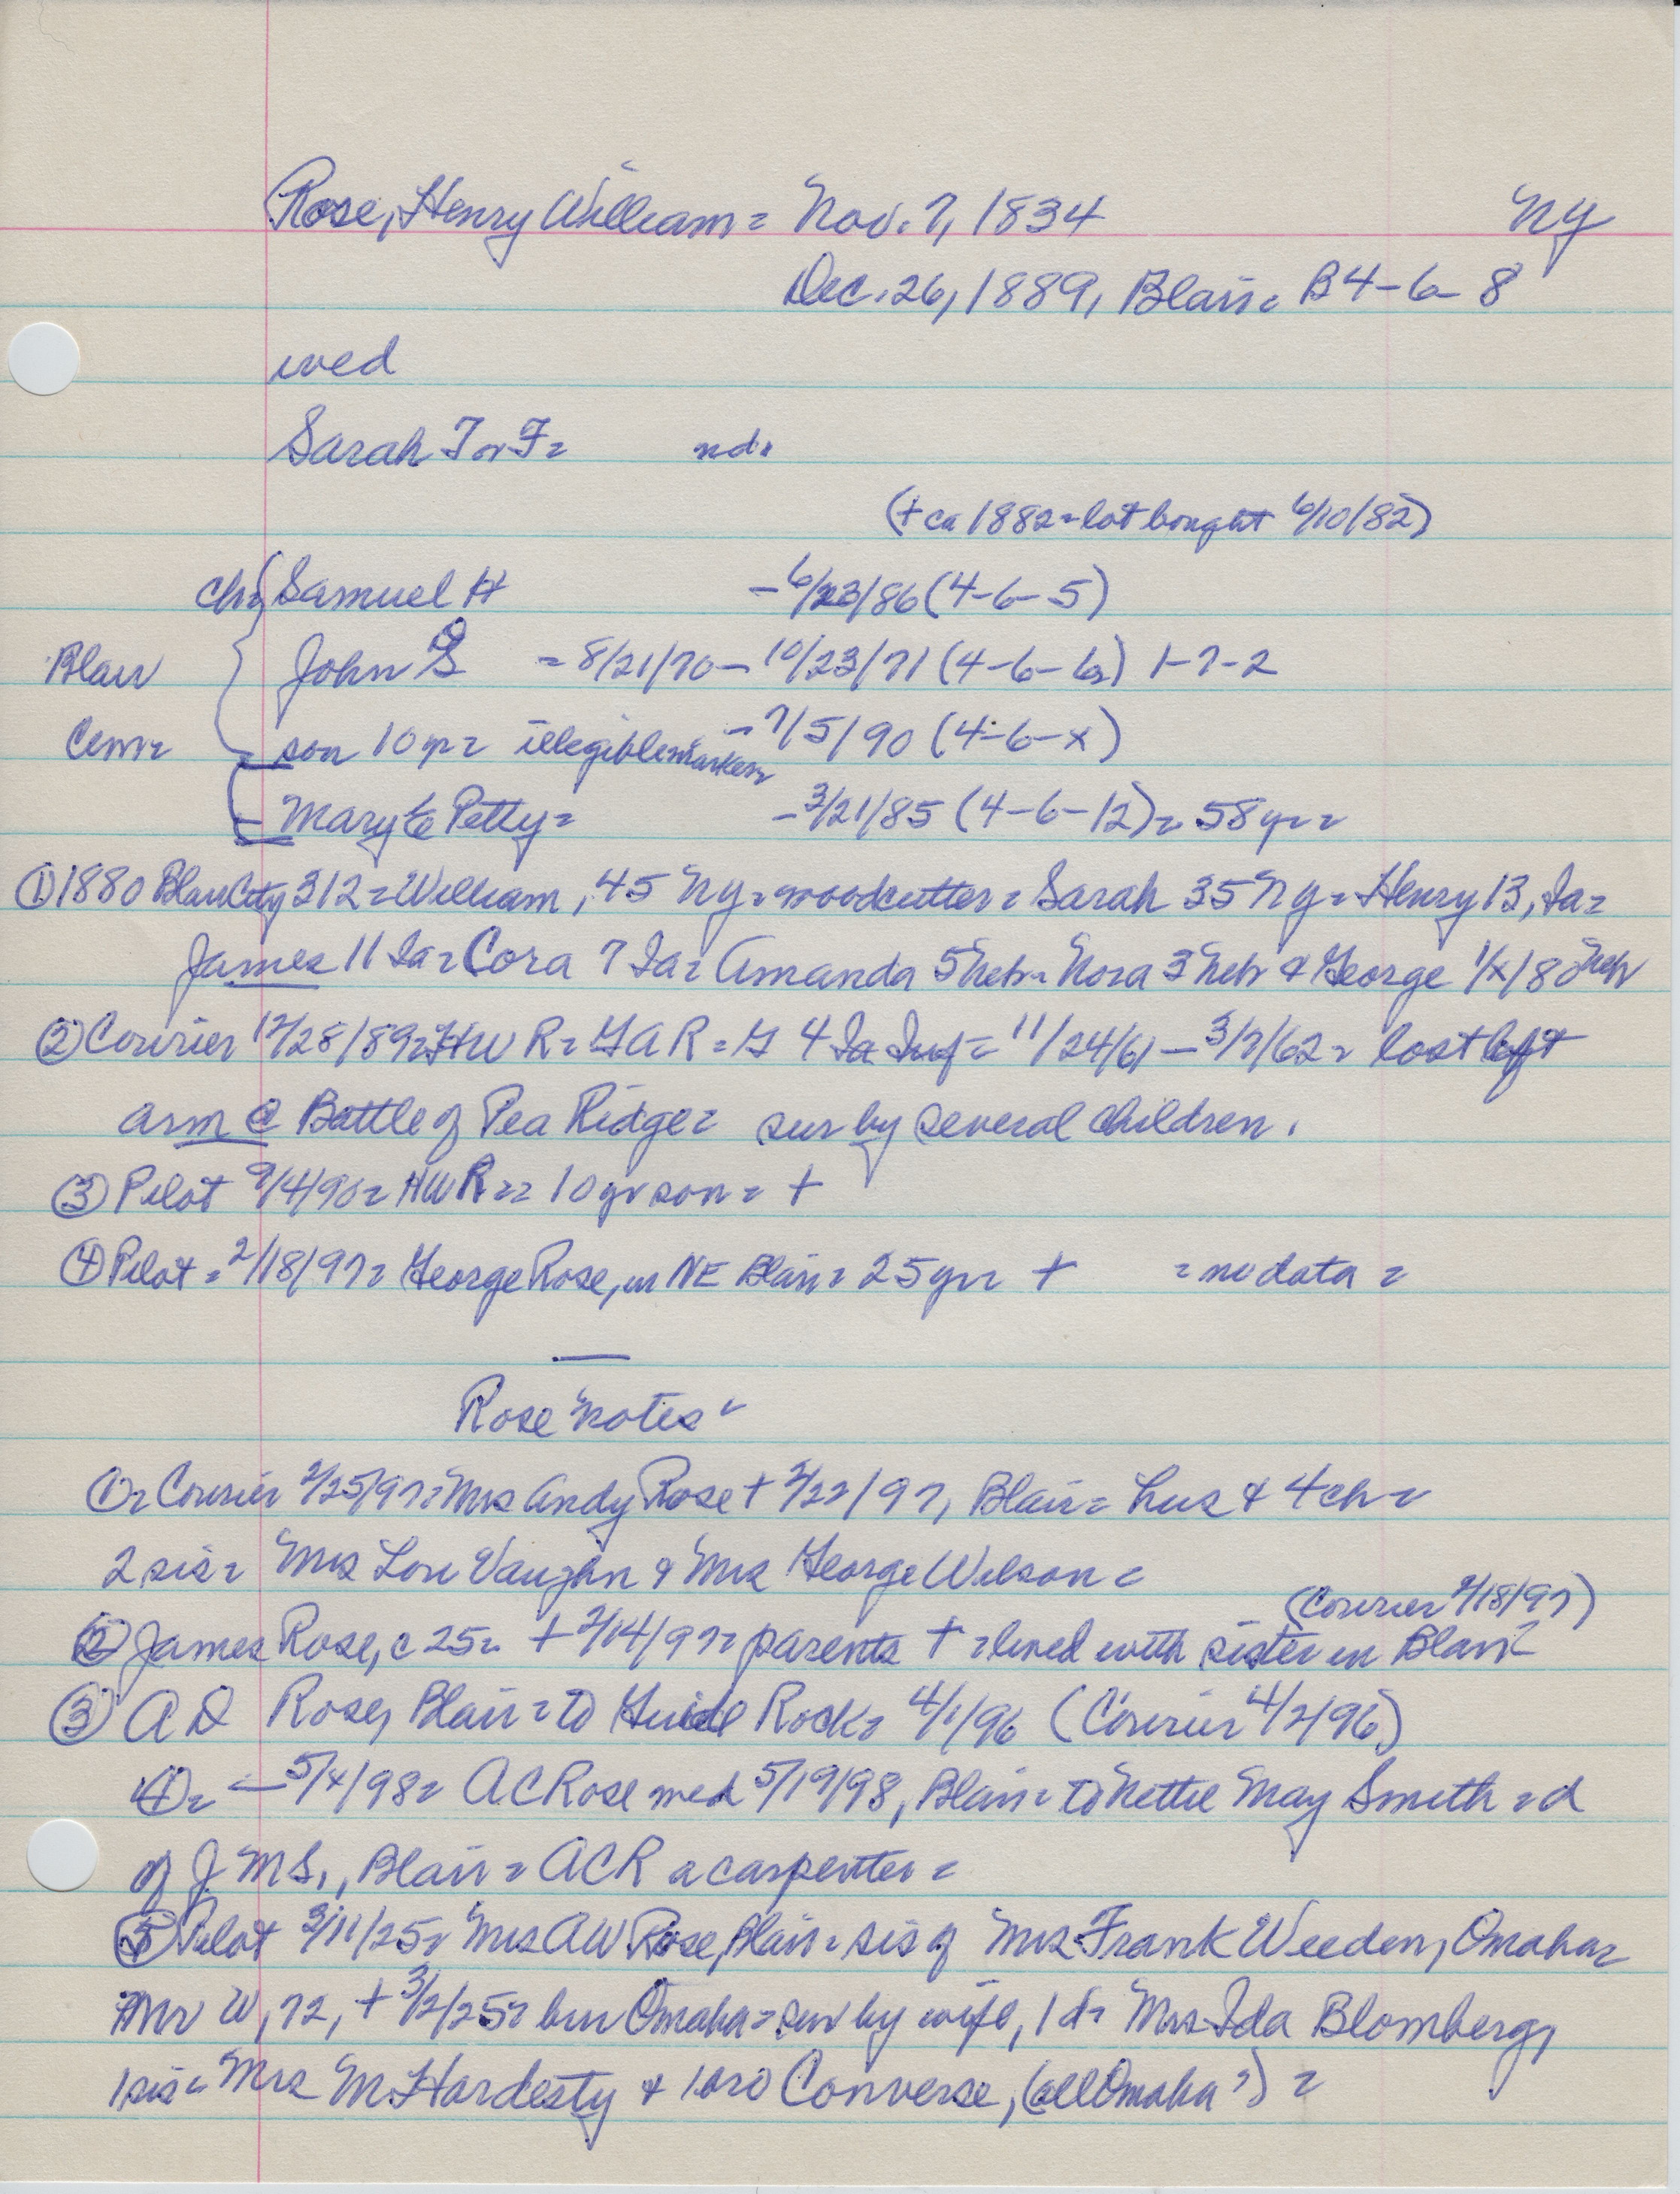 Rose, Henry William = Nov. 7, 1834 NY
Dec. 26, 1889, Blair = B 4-6-8
wed
Sarah T or F = nd.
(+ ca 1882 = lot bought 6/10/82)
ch = Samuel H - 6/23/86 (4-6-5)
Blair John G = 8/21/70 - 10/23/71 (4-6-6) 1-7-2
Cem = son 10 yr = illegible marker = - 7/5/90 (4-6-x)
Mary E Petty = - 3/21/85 (4-6-12) = 58 yr =
① 1880 Blair City 312 = William, 45 NY = woodcutter = Sarah 35 NY = Henry 13, Ia =
James 11 Ia = Cora 7 Ia = Amanda 5 Neb = Nora 3 Neb & George 1/x/80 Neb
② Courier 12/28/89 = HW R = GAR = G 4 Ia Inf = 11/24/61 - 3/7/62 = lost left
arm @ Battle of Pea Ridge = sur by several children.
③ Pilot 9/4/90 = HWR = = 10 yr son = +
④ Pilot = 2/18/97 = George Rose, in NE Blair = 25 yr = + = no data =
Rose Notes =
① = Courier 2/25/97 = Mrs Andy Rose + 2/22/97, Blair = hus & 4 ch =
2 sis = Mrs Lou Vaughn & Mrs George Wilson =
(Courier 2/18/97)
② James Rose, c 25 = + 2/14/97 = parents + = lived with sister in Blair =
③ A D Rose, Blair = to Guide Rock = 4/1/96 (Courier 4/2/96)
④ = - 5/x/98 = AC Rose wed 5/19/98, Blair = to Nettie May Smith = d
of J M S., Blair = ACR a carpenter =
⑤ Pilot 3/11/25 = Mrs AW Rose, Blair = sis of Mrs Frank Weeden, Omaha =
Mr W, 72, + 3/2/25 = bur Omaha = sur by wife, 1 d = Mrs Ida Blomberg,
1 sis = Mrs M Hardesty & 1 bro Converse, (all Omaha?) =